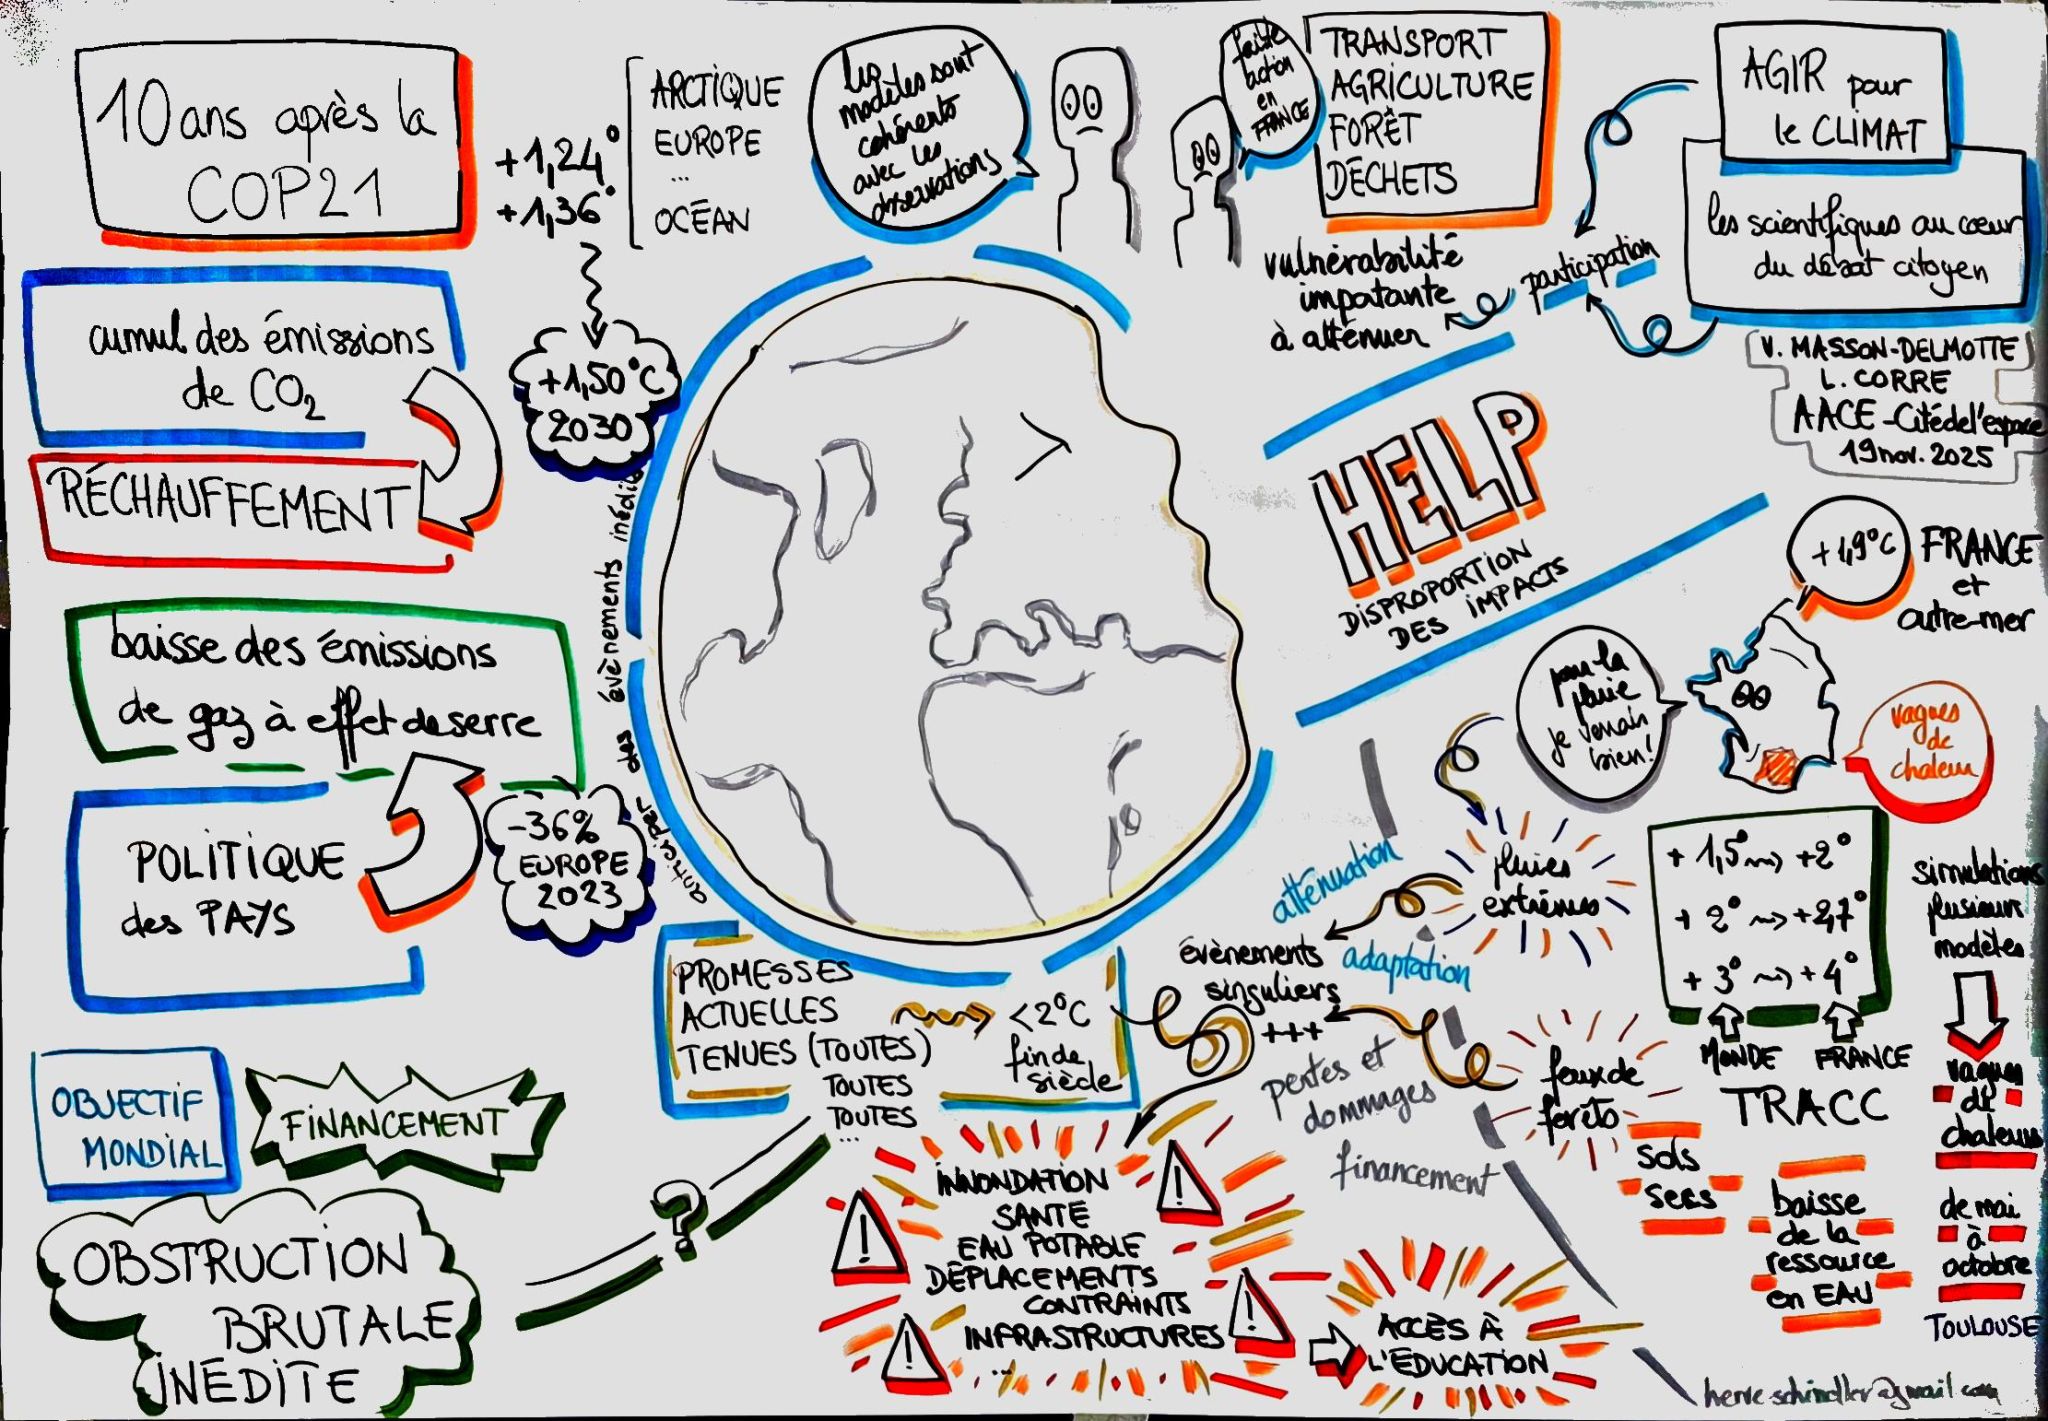 10 ans après la
COP21
+1,24°
+1,36°
ARCTIQUE
EUROPE
...
OCÉAN
les
modèles sont
cohérents
avec les
observations
faible
action
en
FRANCE
TRANSPORT
AGRICULTURE
FORÊT
DÉCHETS
AGIR pour
le CLIMAT
les scientifiques au coeur
du débat citoyen
participation
vulnérabilité
impotante
à atténuer
V. MASSON-DELMOTTE
L. CORRE
AACE - Cité de l'espace
19 nov. 2025
cumul des émissions
de CO2
RÉCHAUFFEMENT
+1,50°C
2030
baisse des émissions
de gaz à effet de serre
POLITIQUE
des PAYS
-36%
EUROPE
2023
anticiper des évènements inédits
HELP
DISPROPORTION
DES IMPACTS
+1,9°C
FRANCE
et
outre-mer
pour la
pluie
je venais
bien!
vagues
de
chaleur
pluies
extrêmes
atténuation
adaptation
évènements
singuliers
+++
pertes et
dommages
financement
feux de
forêts
+ 1,5° ⇝ +2°
+ 2° ⇝ +2,7°
+ 3° ⇝ +4°
MONDE FRANCE
TRACC
simulations
plusieurs
modèles
vagues
de
chaleurs
de mai
à
octobre
TOULOUSE
sols
secs
baisse
de la
ressource
en EAU
PROMESSES
ACTUELLES
TENUES (TOUTES)
TOUTES
TOUTES
...
<2°C
fin de
siècle
OBJECTIF
MONDIAL
FINANCEMENT
OBSTRUCTION
BRUTALE
INÉDITE
?
INNONDATION
SANTÉ
EAU POTABLE
DÉPLACEMENTS
CONTRAINTS
INFRASTRUCTURES
...
ACCÈS À
L'ÉDUCATION
herve.schindler@gmail.com